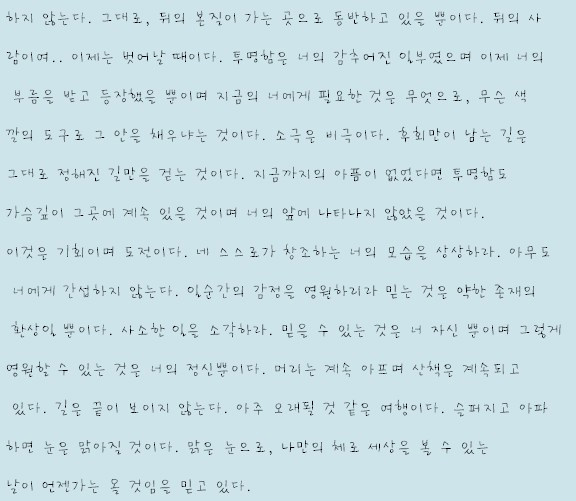 하지 않는다. 그대로, 뒤의 본질이 가는 곳으로 동반하고 있을 뿐이다. 뒤의 사
람이여.. 이제는 벗어날 때이다. 투명함은 너의 감추어진 일부였으며 이제 너의
부름을 받고 등장했을 뿐이며 지금의 너에게 필요한 것은 무엇으로, 무슨 색
깔의 도구로 그 안을 채우냐는 것이다. 소극은 비극이다. 후회만이 남는 길은
그대로 정해진 길만을 걷는 것이다. 지금까지의 아픔이 없었다면 투명함도
가슴깊이 그곳에 계속 있을 것이며 너의 앞에 나타나지 않았을 것이다.
이것은 기회이며 도전이다. 네 스스로가 창조하는 너의 모습을 상상하라. 아무도
너에게 간섭하지 않는다. 일순간의 감정을 영원하리라 믿는 것은 약한 존재의
환상일 뿐이다. 사소한 일을 소각하라. 믿을 수 있는 것은 너 자신 뿐이며 그렇게
영원할 수 있는 것은 너의 정신뿐이다. 머리는 계속 아프며 산책은 계속되고
있다. 길은 끝이 보이지 않는다. 아주 오래될 것 같은 여행이다. 슬퍼지고 아파
하면 눈은 맑아질 것이다. 맑은 눈으로, 나만의 체로 세상을 볼 수 있는
날이 언젠가는 올 것임을 믿고 있다.